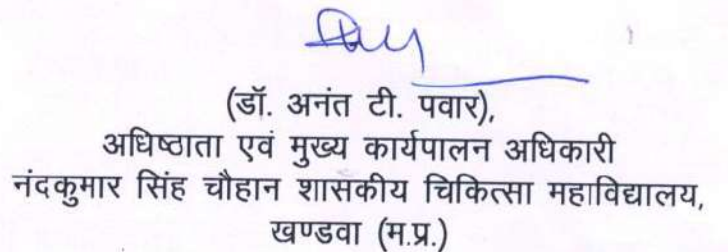 (डॉ. अनंत टी. पवार),
अधिष्ठाता एवं मुख्य कार्यपालन अधिकारी
नंदकुमार सिंह चौहान शासकीय चिकित्सा महाविद्यालय,
खण्डवा (म.प्र.)